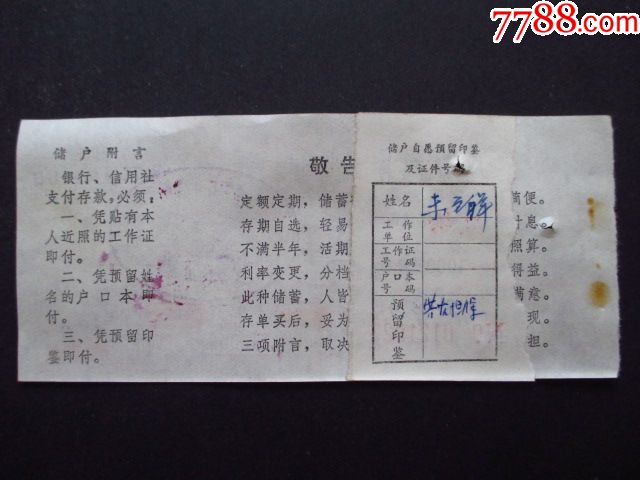 7788.com
中国收藏热线
储户附言
银行、信用社
支付存款,必须:
一、凭贴有本
人近照的工作证
即付。
二、凭预留姓
名的户口本即
付。
三、凭预留印
鉴即付。
敬告
定额定期,储蓄
存期自选,轻易
不满半年,活期
利率变更,分档
此种储蓄,人皆
存单买后,妥为
三项附言,取决
储户自愿预留印鉴
及证件号码
姓名
工作单位
工作证号码
户口本号码
预留印鉴
简便。
计息。
照算。
得益。
意。
现。
担。